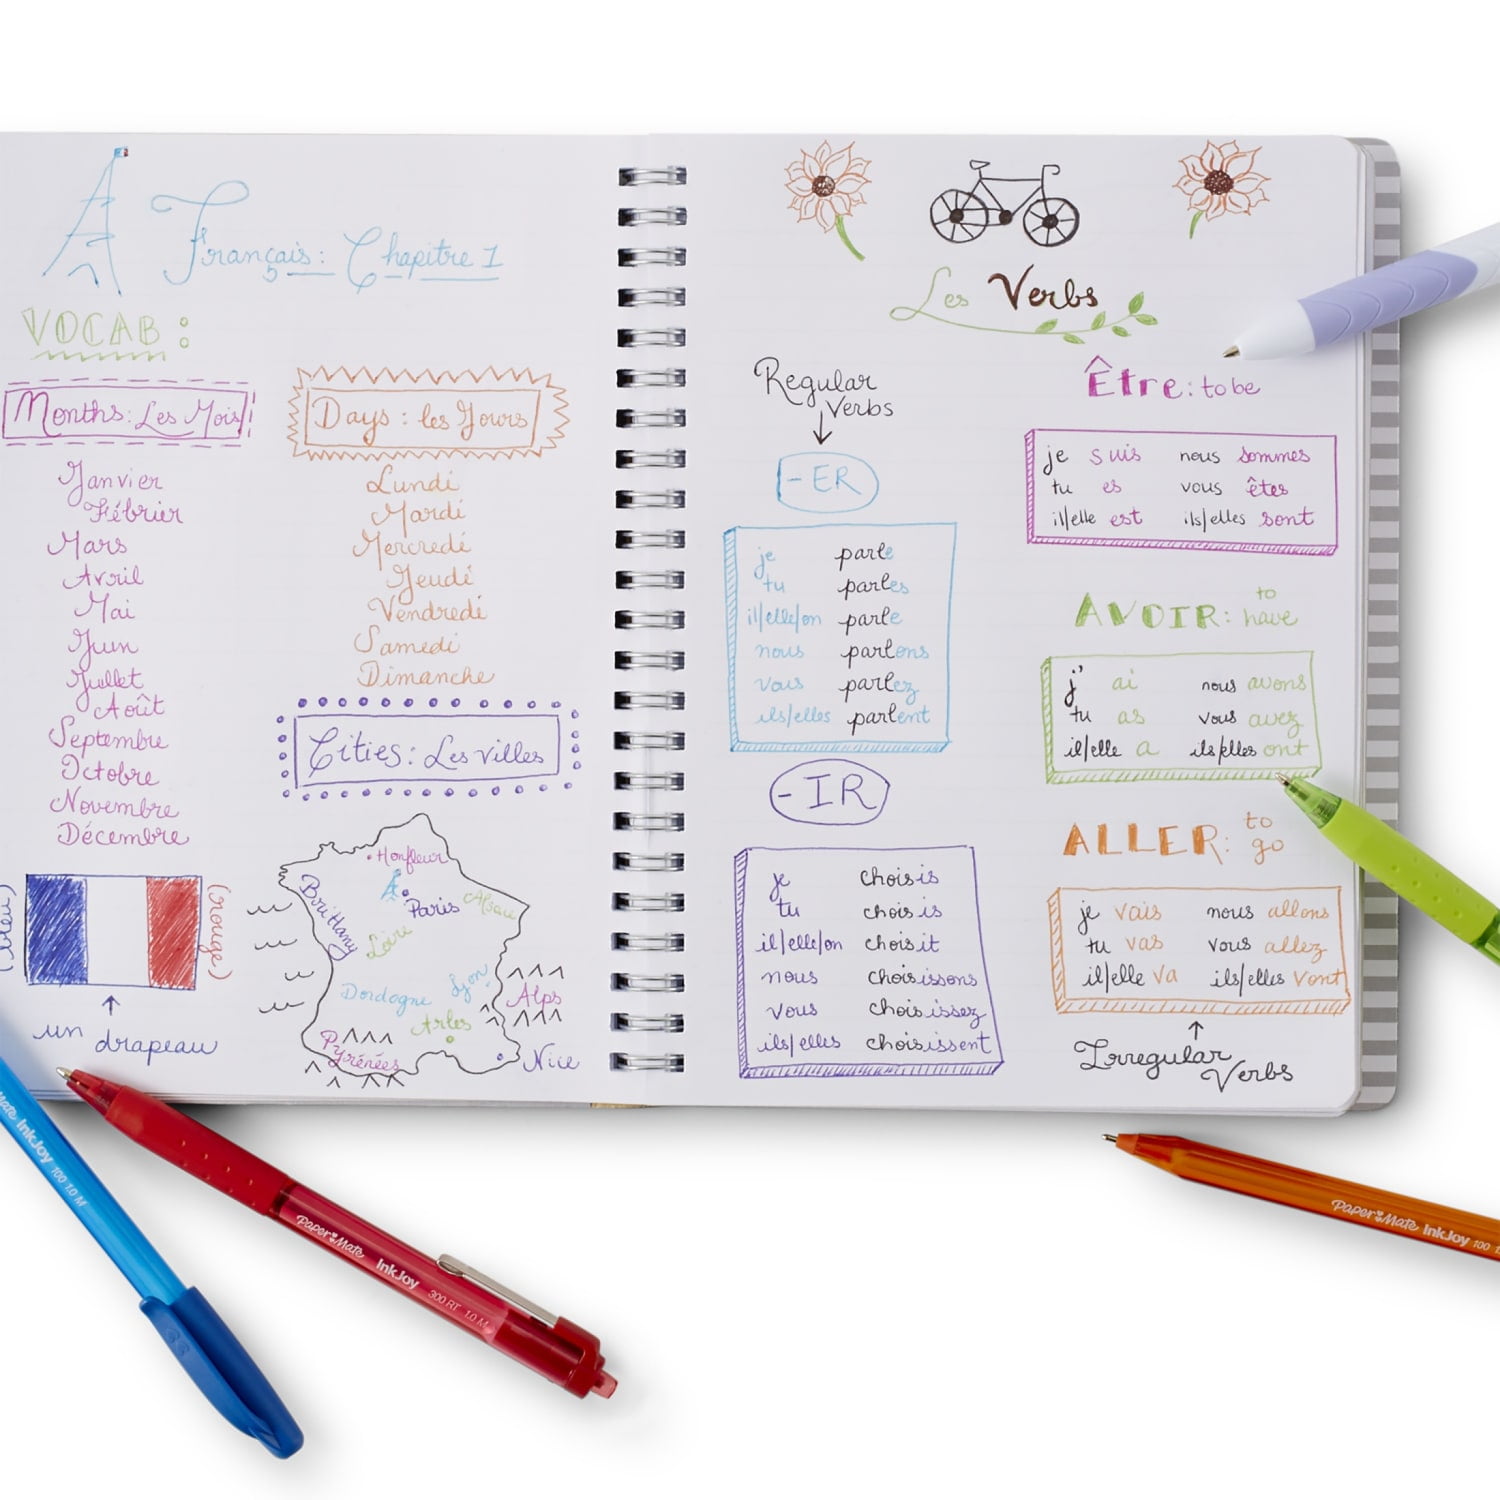 Français: Chapitre 1
VOCAB:
Months: Les Mois
Janvier
Fébrier
Mars
Avril
Mai
Juin
Juillet
Août
Septembre
Octobre
Novembre
Décembre
Days: les Jours
Lundi
Mardi
Mercredi
Jeudi
Vendredi
Samedi
Dimanche
Cities: Les villes
Honfleur
Paris
Alsace
Brittany
Loire
Lyon
Dordogne
Alps
Arles
Pyrénées
Nice
(bleu)
(rouge)
un drapeau
Les Verbs
Regular
Verbs
-ER
je parle
tu parles
il/elle/on parle
nous parlons
vous parlez
ils/elles parlent
-IR
je choisis
tu choisis
il/elle/on choisit
nous choisissons
vous choisissez
ils/elles choisissent
Être: to be
je suis nous sommes
tu es vous êtes
il/elle est ils/elles sont
AVOIR: to have
j' ai nous avons
tu as vous avez
il/elle a ils/elles ont
ALLER: to go
je vais nous allons
tu vas vous allez
il/elle va ils/elles vont
Irregular
Verbs
Mate InkJoy 100 1.0 M
Paper Mate InkJoy 300 RT 1.0 M
Paper Mate InkJoy 100